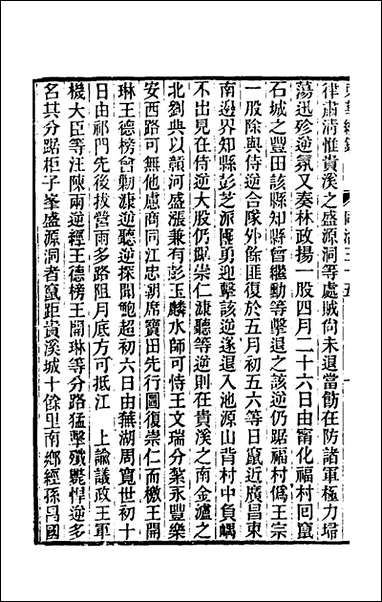 律肅清惟貴溪之盛源洞等處賊尙未退當飭在防諸軍極力埽
蕩迅殄逆氛又奏林政揚一股四月二十六日由甯化福村回竄
石城之豐田該縣知縣曾繼勳等擊退之該逆仍踞福村僞王宗
一股除與侍逆合隊外餘匪復於五月初五六等日竄近廣昌東
南邊界知縣彭芝派團勇迎擊該逆遂退入池源山背村中負嵎
不出見在侍逆大股仍踞崇仁溓聽等逆則在貴溪之南金瀘之
北劉典以贛河盛漲兼有彭玉麟水師可恃王文瑞分紮永豐樂
安西路可無他虞商同江忠朝席寶田先行圖復崇仁而檄王開
琳王德榜會勦溓逆聽逆探聞鮑超初六日由蕪湖周寬世初十
日由祁門先後拔營雨多路阻月底方可抵江　上諭議政王軍
機大臣等汪陳兩逆經王德榜王開琳等分路猛擊殲斃悍逆多
名其分踞柜子峯盛源洞者竄距貴溪城十餘里南鄉經孫昌國